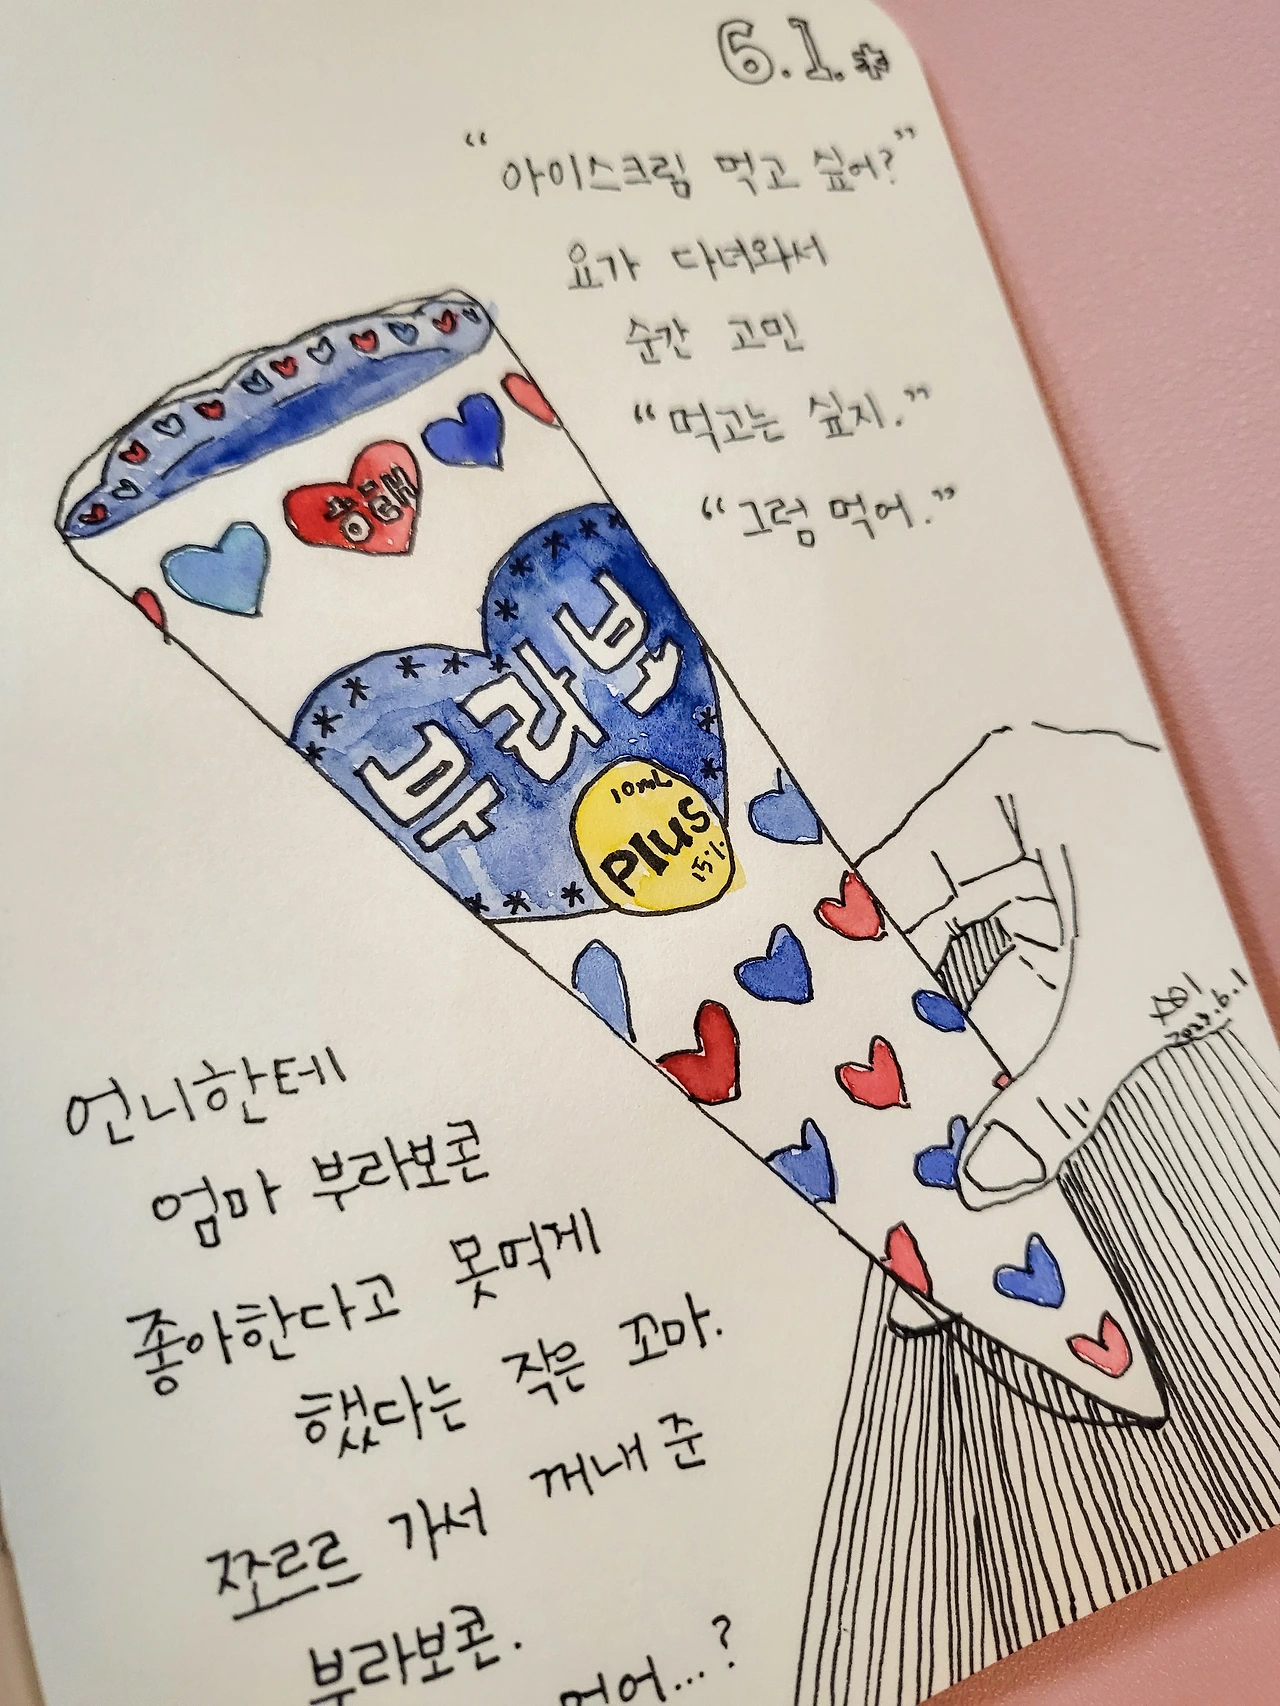 6.1.*
“아이스크림 먹고 싶어?”
요가 다녀와서
순간 고민
“먹고는 싶지.”
“그럼 먹어.”
해태
부라보
10mL
Plus
15%
2023.6.1
언니한테
엄마 부라보콘
좋아한다고 못먹게
했다는 작은 꼬마.
쪼르르 가서 꺼내 준
부라보콘.
먹어...?